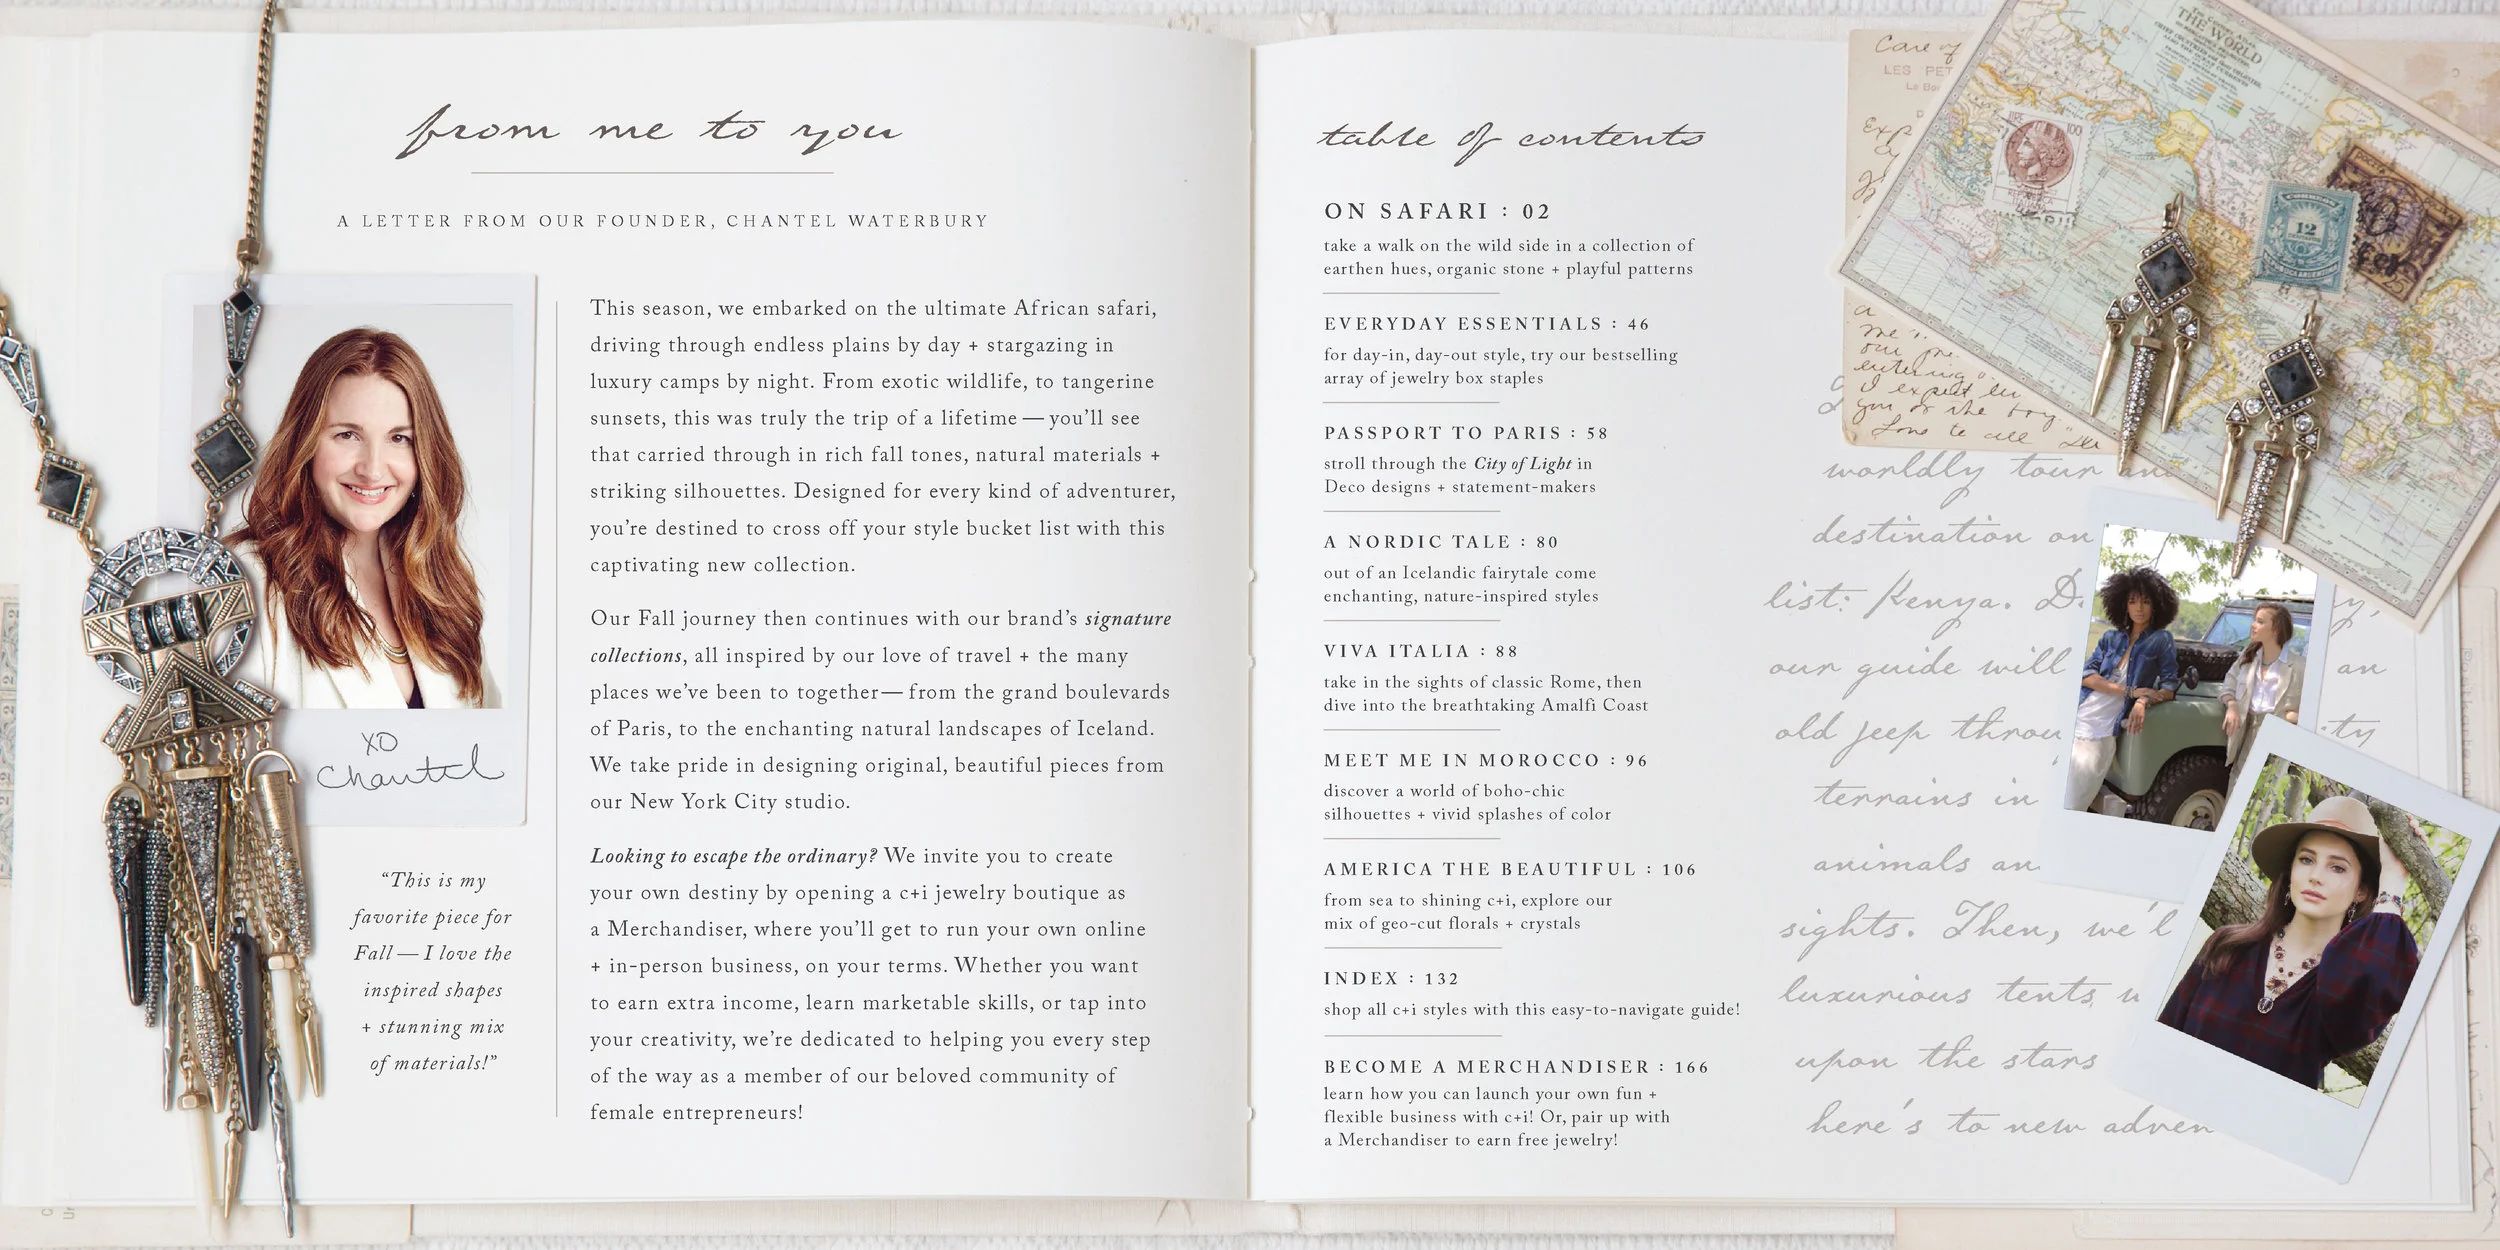 from me to you
A LETTER FROM OUR FOUNDER, CHANTEL WATERBURY
XO
Chantel
“This is my
favorite piece for
Fall — I love the
inspired shapes
+ stunning mix
of materials!”
This season, we embarked on the ultimate African safari,
driving through endless plains by day + stargazing in
luxury camps by night. From exotic wildlife, to tangerine
sunsets, this was truly the trip of a lifetime — you’ll see
that carried through in rich fall tones, natural materials +
striking silhouettes. Designed for every kind of adventurer,
you’re destined to cross off your style bucket list with this
captivating new collection.
Our Fall journey then continues with our brand’s signature
collections, all inspired by our love of travel + the many
places we’ve been to together— from the grand boulevards
of Paris, to the enchanting natural landscapes of Iceland.
We take pride in designing original, beautiful pieces from
our New York City studio.
Looking to escape the ordinary? We invite you to create
your own destiny by opening a c+i jewelry boutique as
a Merchandiser, where you’ll get to run your own online
+ in-person business, on your terms. Whether you want
to earn extra income, learn marketable skills, or tap into
your creativity, we’re dedicated to helping you every step
of the way as a member of our beloved community of
female entrepreneurs!
table of contents
ON SAFARI : 02
take a walk on the wild side in a collection of
earthen hues, organic stone + playful patterns
EVERYDAY ESSENTIALS : 46
for day-in, day-out style, try our bestselling
array of jewelry box staples
PASSPORT TO PARIS : 58
stroll through the City of Light in
Deco designs + statement-makers
A NORDIC TALE : 80
out of an Icelandic fairytale come
enchanting, nature-inspired styles
VIVA ITALIA : 88
take in the sights of classic Rome, then
dive into the breathtaking Amalfi Coast
MEET ME IN MOROCCO : 96
discover a world of boho-chic
silhouettes + vivid splashes of color
AMERICA THE BEAUTIFUL : 106
from sea to shining c+i, explore our
mix of geo-cut florals + crystals
INDEX : 132
shop all c+i styles with this easy-to-navigate guide!
BECOME A MERCHANDISER : 166
learn how you can launch your own fun +
flexible business with c+i! Or, pair up with
a Merchandiser to earn free jewelry!
Care of
LES PET
THE WORLD
100
12
25
I expect
you or the boy
Love to all
worldly tour
destination on
list: Kenya. D
our guide will an
old jeep throu ty
terrains in
animals an
sights. Then, we'l
luxurious tents
upon the stars
here's to new adven